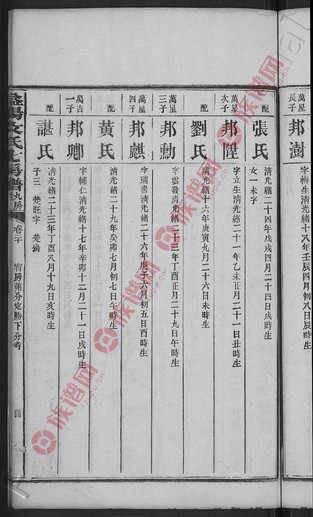 萬星長子 邦澍
字梅生清光緒十八年壬辰四月初八日辰時生
配 張氏
清光緒二十四年戊戌四月二十四日戌時生
女一 未字
萬星次子 邦陞
字立生清光緒二十一年乙未正月二十一日丑時生
配 劉氏
清光緒十六年庚寅九月二十六日未時生
萬星三子 邦勳
清光緒二十三年丁酉正月二十九日午時生
萬星四子 邦麒
字瑞書清光緒二十六年庚子六月初五日酉時生
配 黃氏
清光緒二十九年癸卯七月初七日午時生
萬吉一子 邦卿
字輔仁清光緒十七年辛卯十二月二十一日戌時生
配 諶氏
清光緒二十三年丁酉八月十九日亥時生
子三 楚旺字 楚
氏七房譜
九房
卷二十
房萬分定勝下分
族谱网